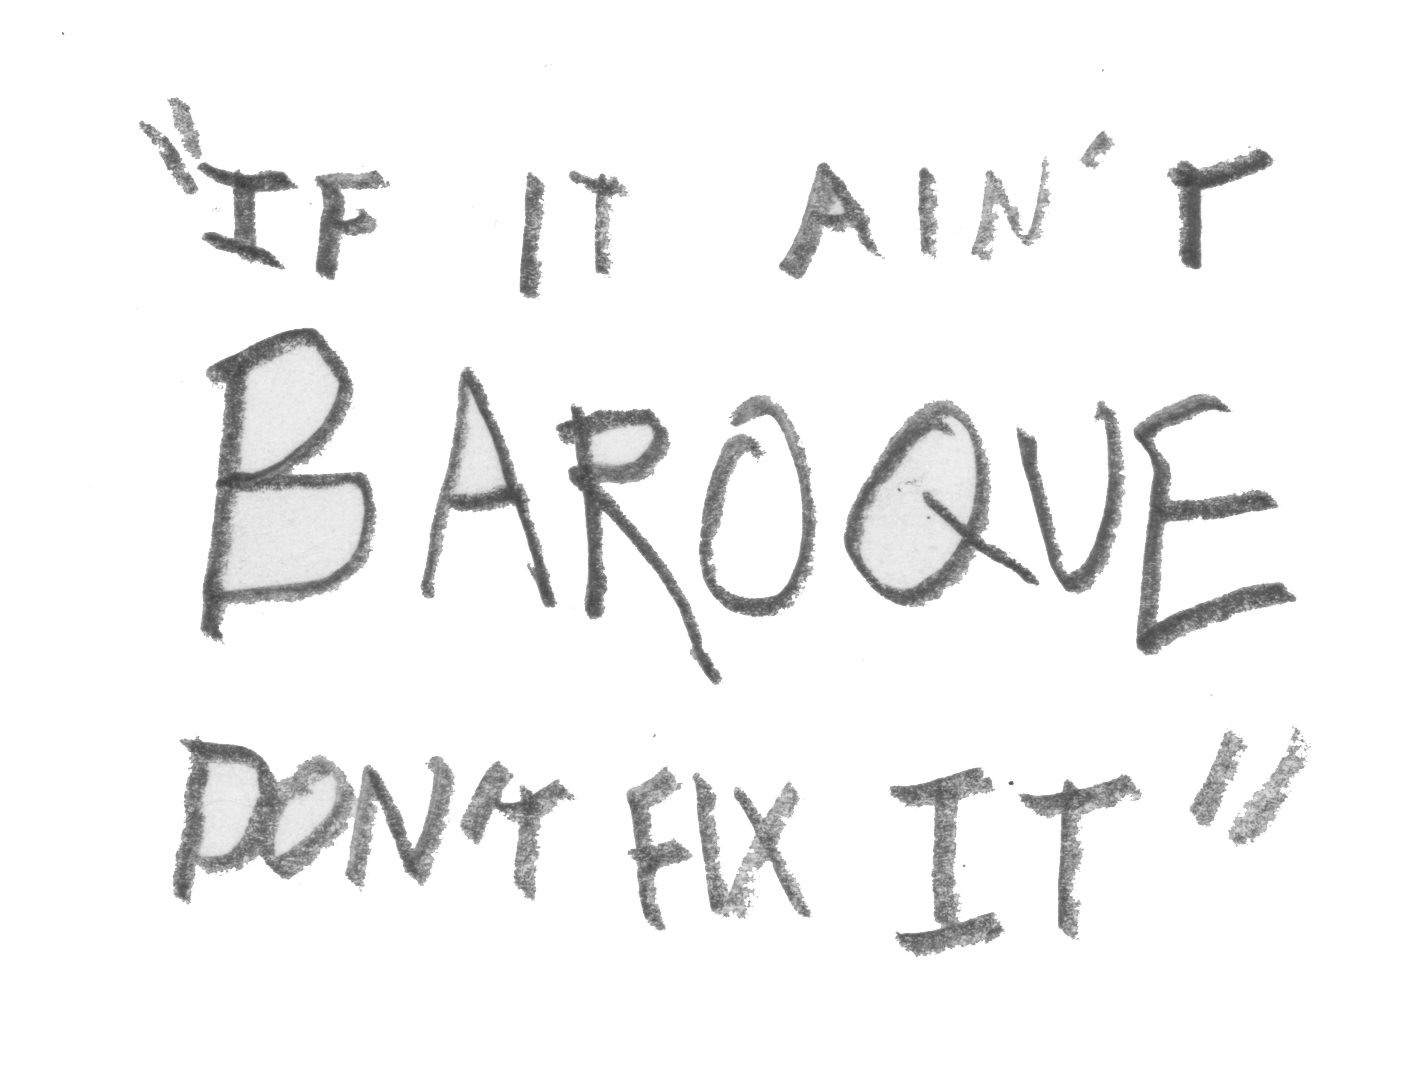 "IF IT AIN'T
BAROQUE
DON'T FIX IT"